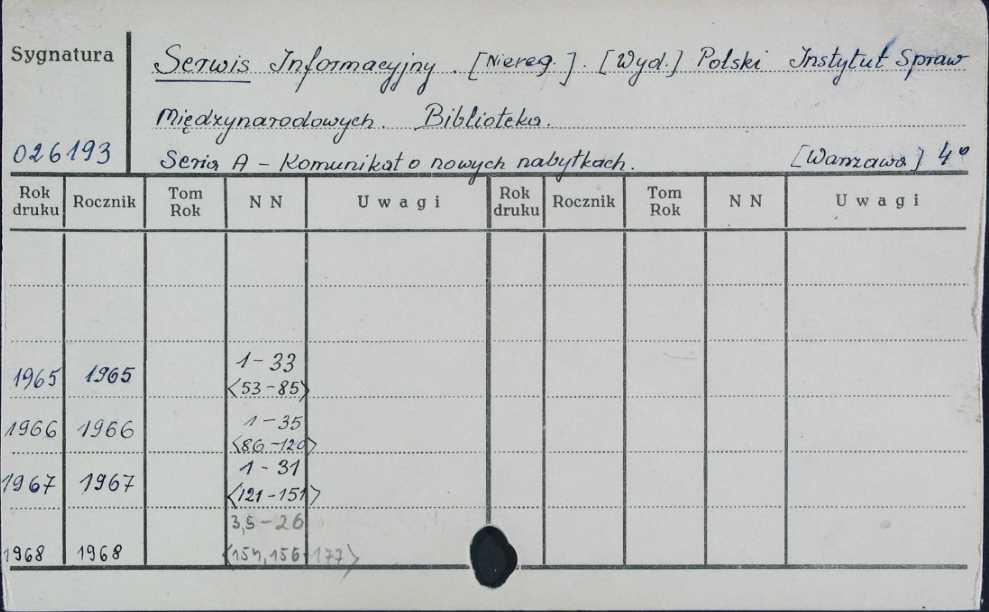 Sygnatura
Serwis Informacyjny. [Niereg.]. [Wyd.] Polski Instytut Spraw
Międzynarodowych. Biblioteka.
026193
Seria A - Komunikat o nowych nabytkach. [Warszawa] 4°
Rok druku Rocznik Tom Rok NN Uwagi Rok druku Rocznik Tom Rok NN Uwagi
1965 1965 1-33
<53-85>
1966 1966 1-35
<86-120>
1967 1967 1-31
<121-151>
3,5-26
1968 1968 <154,156-177>